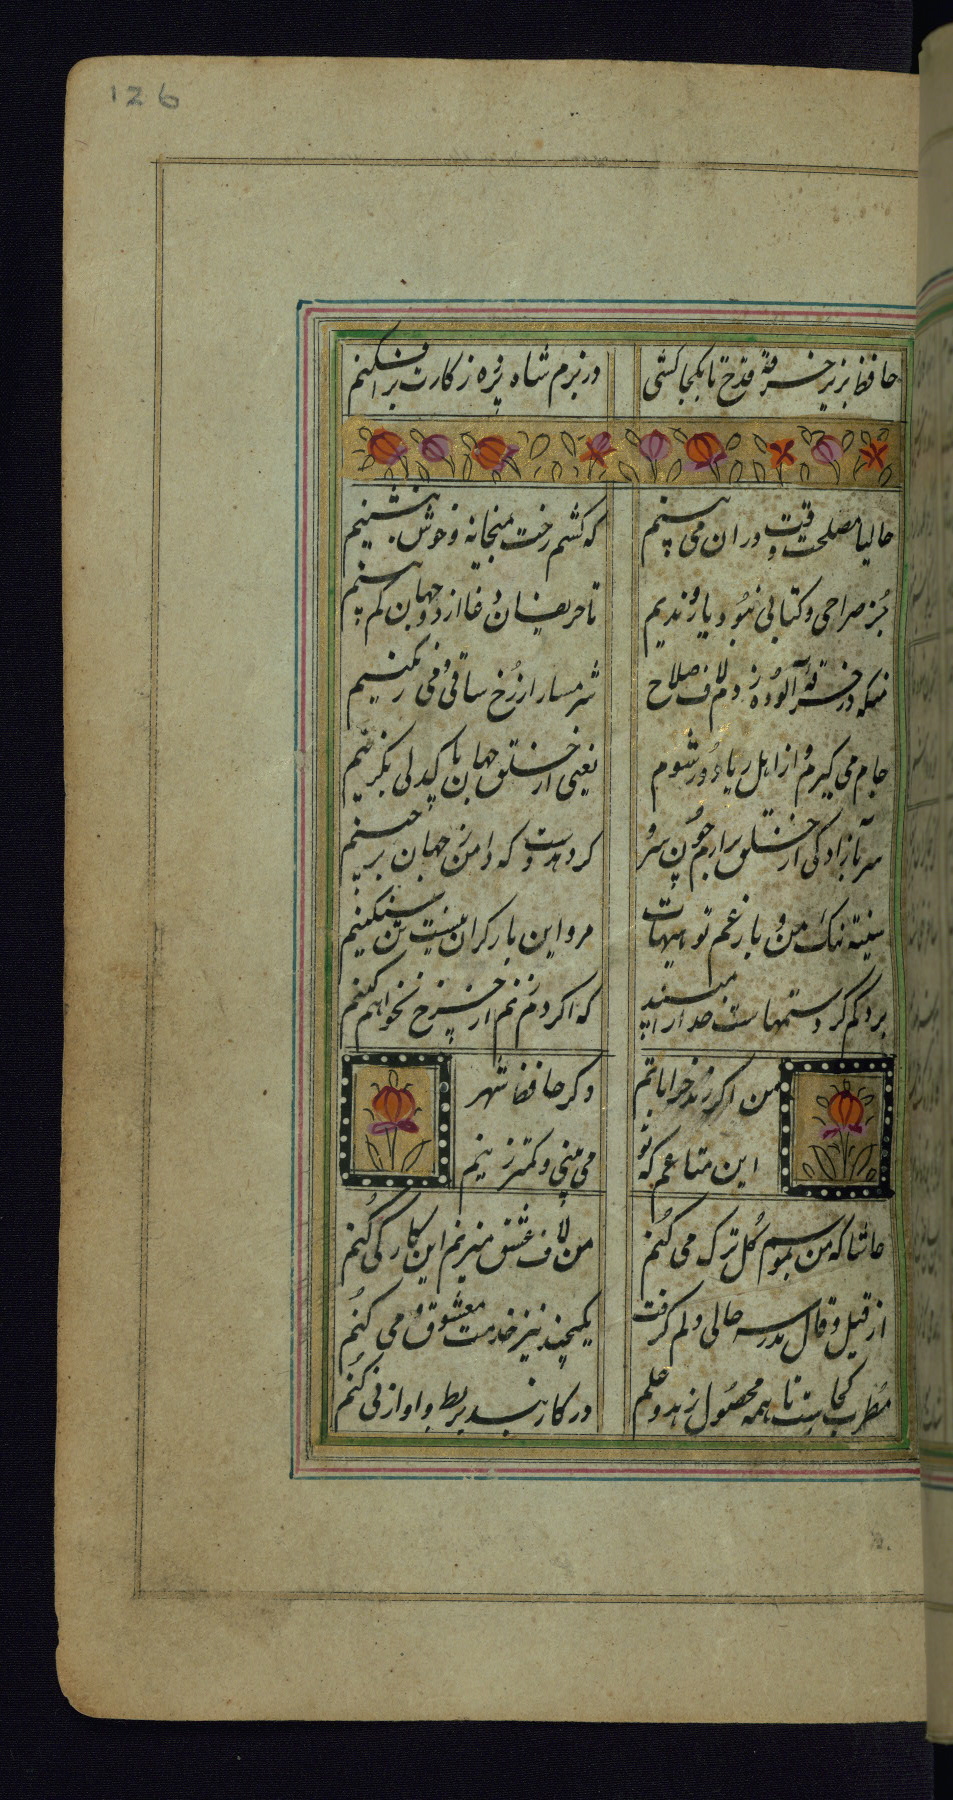 126
حافظ بزیر خرقه قدح تا بکجا کشی در بزم شاه پرده ز کارت برافکنم
حالیا مصلحت وقت در ان می بینم که کشم رخت بمیخانه و خوش بنشینم
جُز صراحی و کتابی نبُود یار و ندیم تا حریفان دغا از دو جهان کم بینم
بسکه در خرقهٔ آلوده زدم لاف صلاح شرمسار از رُخ ساقی و می رنگینم
جام می گیرم و از اهل ریا دُور شوم یعنی از خلق جهان پاکدلی بگزینم
سر بآزادگی از خلق برارم چون سرو گر دهد دست که دامن ز جهان برچینم
سینهٔ تنگ من و بار غم تو هیهات مرد این بار گران نیست تن مسکینم
بر دلم گرد ستمهاست خدارا مپسند که اگر دم زنم از چرخ نخواهم کینم
من اگر رند خراباتم وگر حافظ شهر
این متاعم که تو می بینی و کمتر زینم
حاشا که من بموسم گُل ترک می کُنم من لاف عشق میزنم این کار کی کُنم
از قیل و قال مدرسه حالی دلم گرفت یکچند نیز خدمت معشوق و می کنُم
مُطرب کجاست تا همه محصُول زهد و علم در کار بربط و اواز نی کنُم